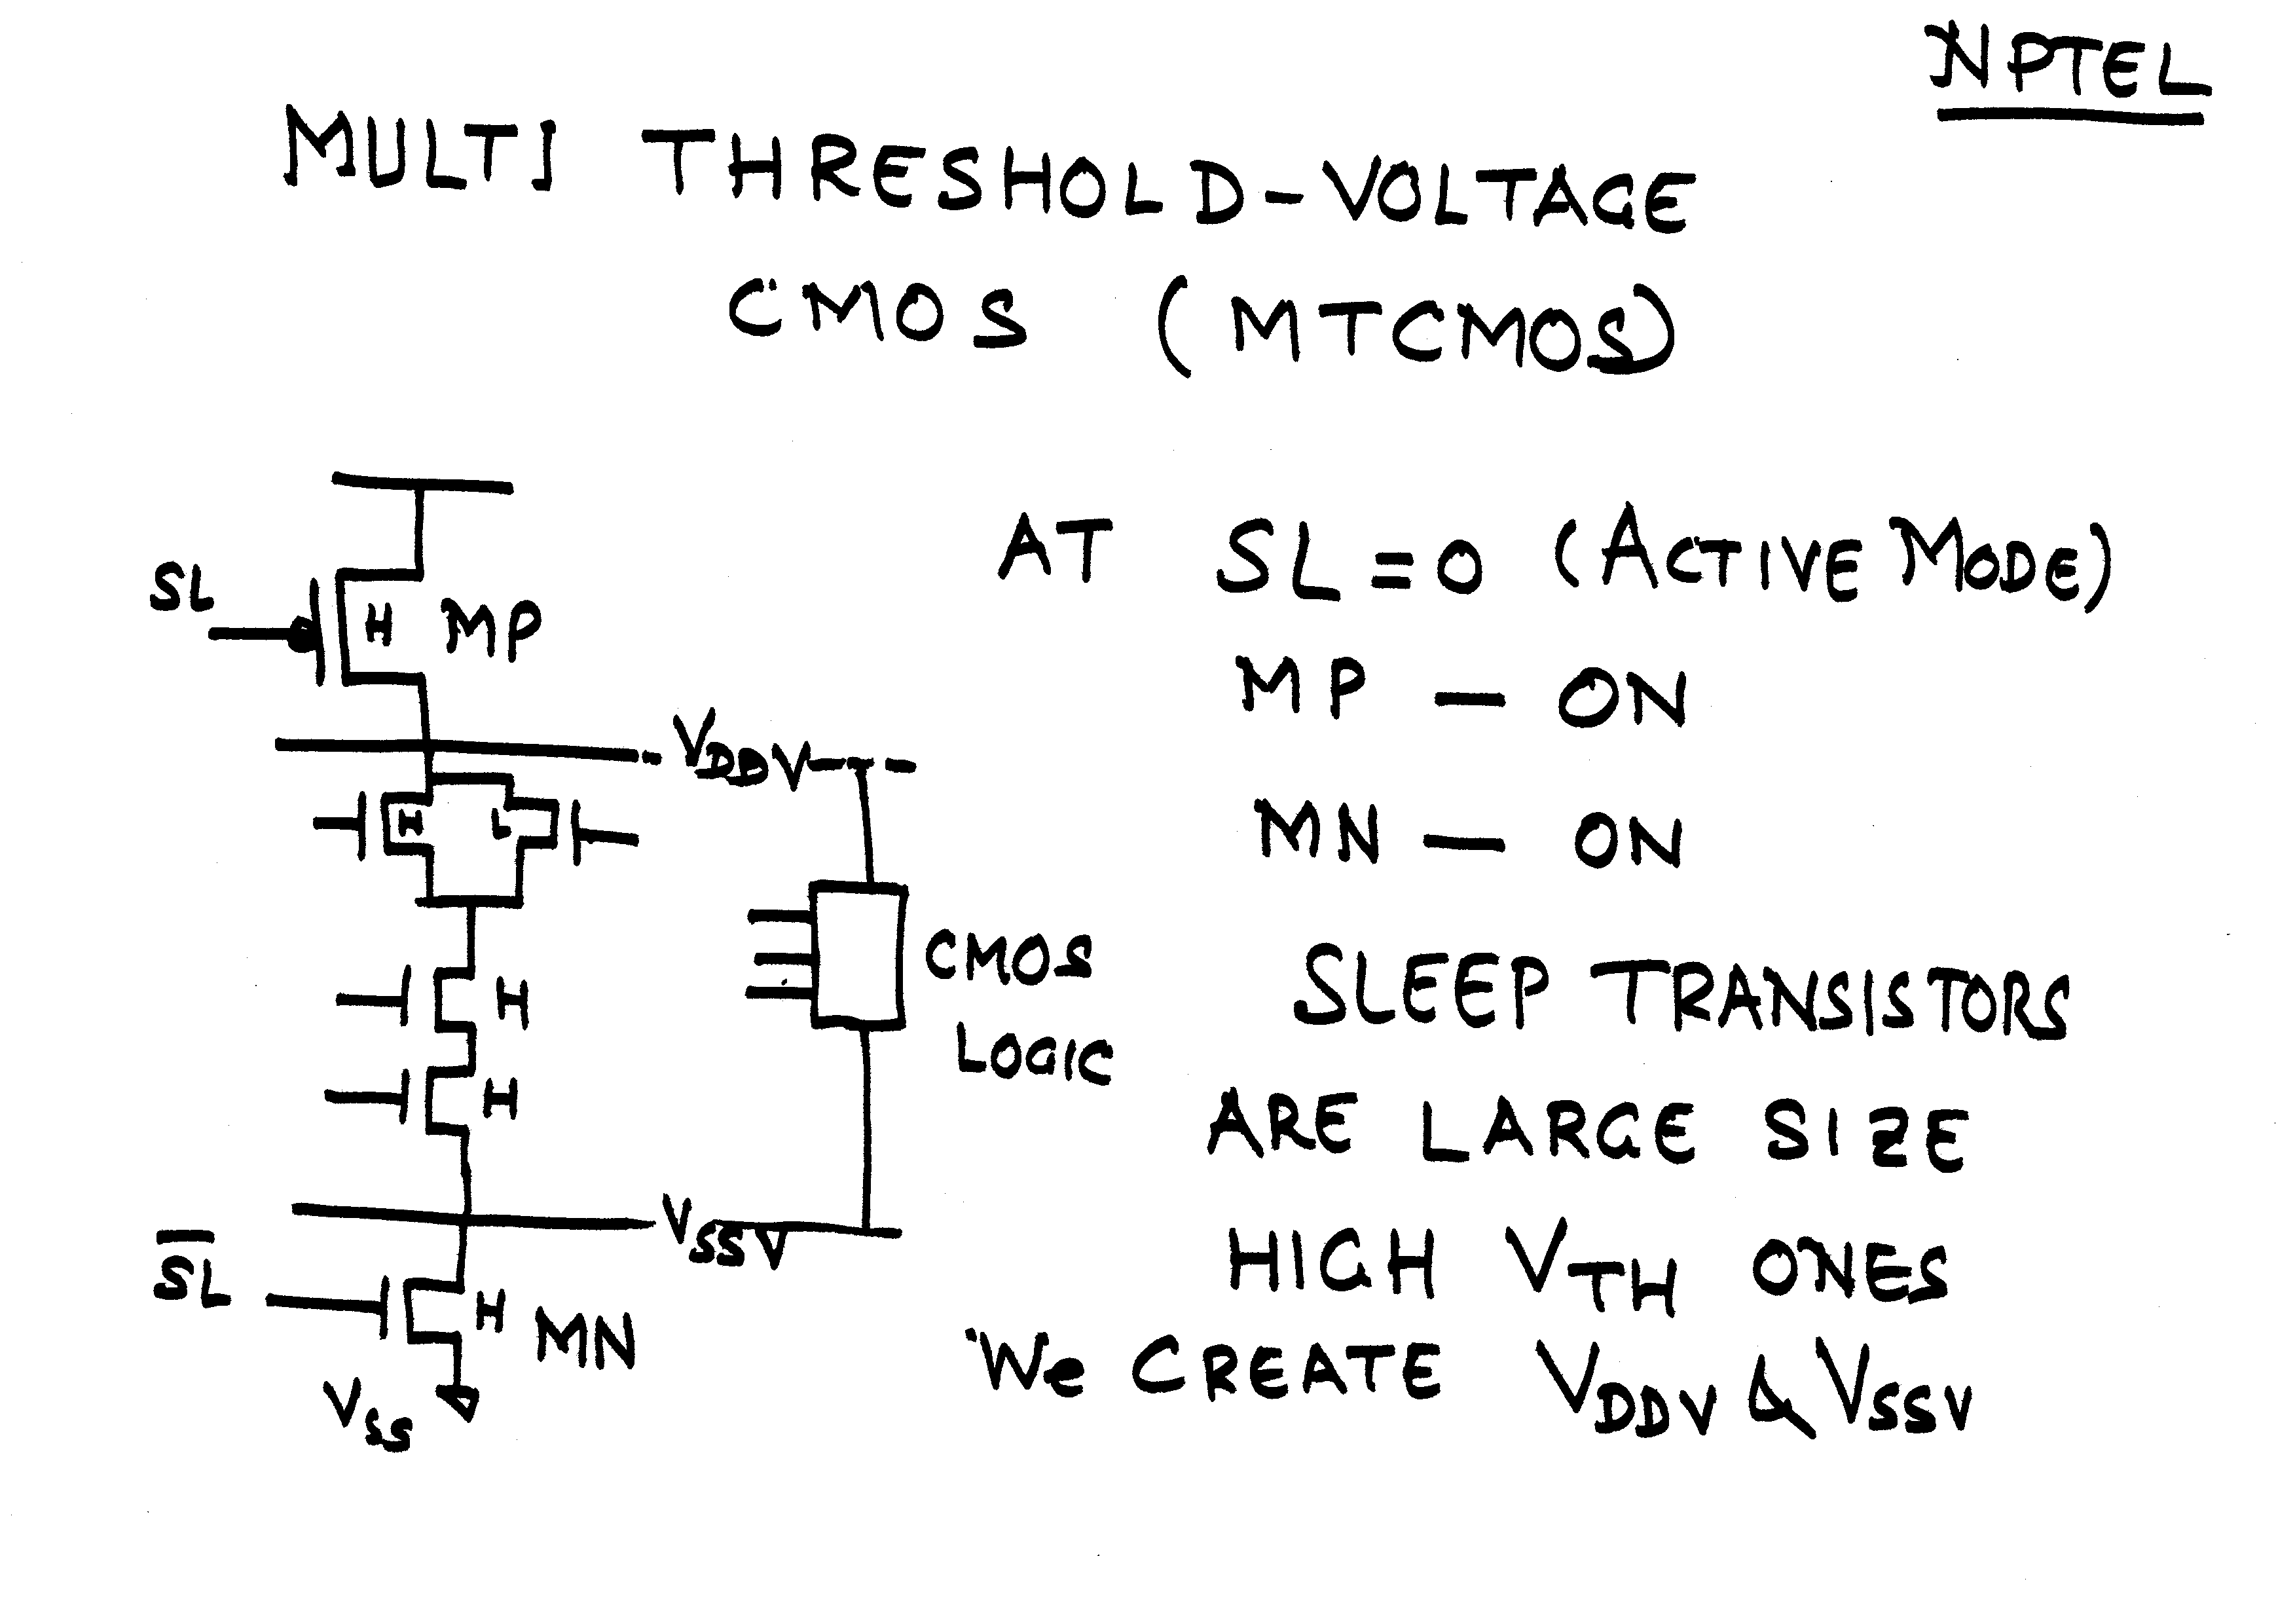 NPTEL
MULTI THRESHOLD-VOLTAGE
CMOS (MTCMOS)
SL
H MP
VDDV
H L
H
H
CMOS
LOGIC
VSSV
S̅L̅
H MN
VSS
AT SL=0 (ACTIVE MODE)
MP — ON
MN — ON
SLEEP TRANSISTORS
ARE LARGE SIZE
HIGH VTH ONES
We CREATE VDDV & VSSV